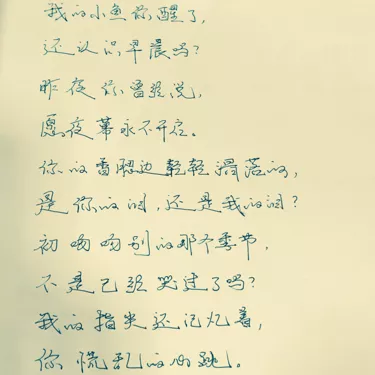 我的小鱼你醒了，
还认识早晨吗？
昨夜你曾经说，
愿夜幕永不开启。
你的香腮边轻轻滑落的，
是你的泪，还是我的泪？
初吻吻别的那个季节，
不是已经哭过了吗？
我的指尖还记忆着，
你慌乱的心跳。